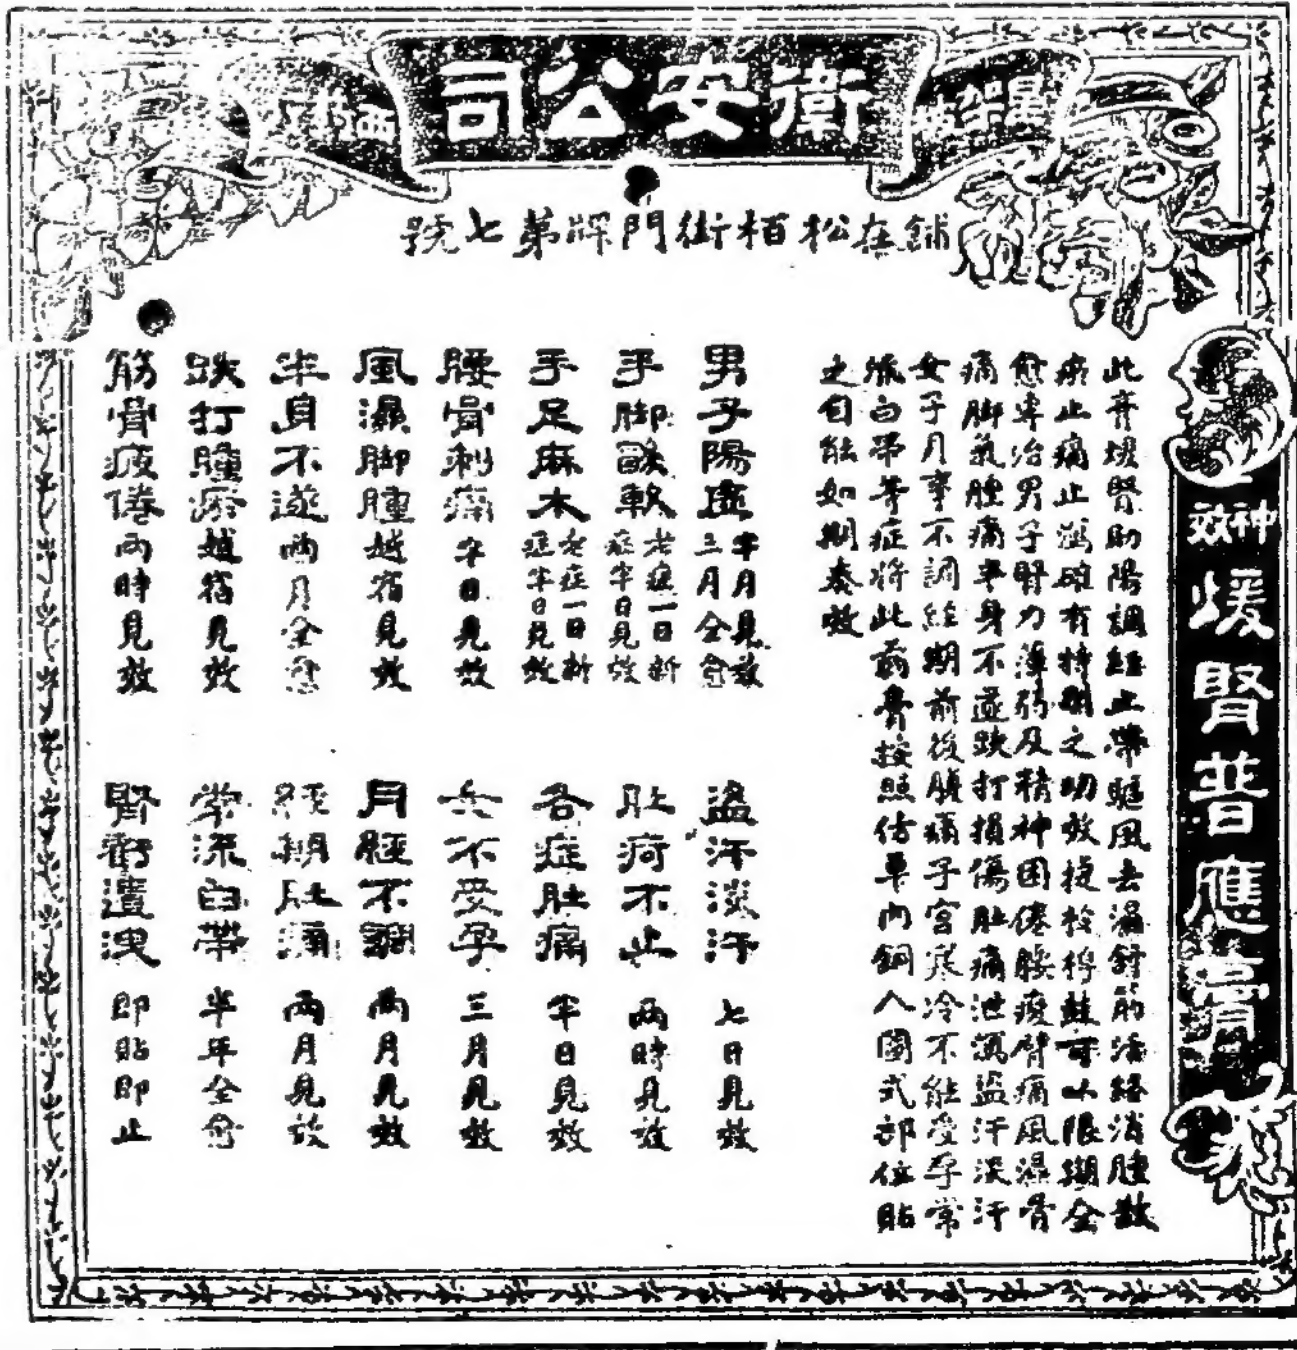 衛安公司
舖在松栢街門牌第七號
神效
煖腎普應膏
此膏煖腎助陽調經止帶驅風去濕舒筋活絡消腫散
瘀止痛止瀉確有特別之功效捷於桴鼓可以限期全
愈專治男子腎力薄弱及精神困倦腰痠臂痛風濕骨
痛脚氣腫痛半身不遂跌打損傷肚痛泄瀉盜汗淡汗
女子月事不調經期前後腹痛子宮寒冷不能受孕常
流白帶等症將此葯膏按照仿單內銅人圖式部位貼
之自能如期奏效
男子陽虛 半月見效三月全愈
手脚酸軟 老症一日新症半日見效
手足麻木 老症一日新症半日見效
腰骨刺痛 半日見效
風濕脚腫 越宿見效
半身不遂 兩月全愈
跌打腫瘀 越宿見效
筋骨疲倦 兩時見效
盜汗淡汗 七日見效
肚疴不止 兩時見效
各症肚痛 半日見效
久不受孕 三月見效
月經不調 兩月見效
經期肚痛 兩月見效
常流白帶 半年全愈
腎虧遺洩 即貼即止